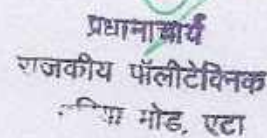 प्रधानाचार्य
राजकीय पॉलीटेक्निक
मोड, एटा